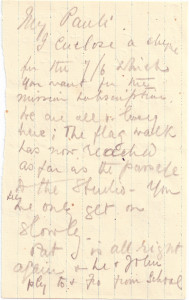 My Pauli
I enclose a cheque
for the 7/6 which
you want in the
mission subscription
We are all so busy
here; The flag walk
has now reached
as far as the parade
to the Studio – You
me only get on
slowly
Pat is all right
again & he & John
ply to & fro from School